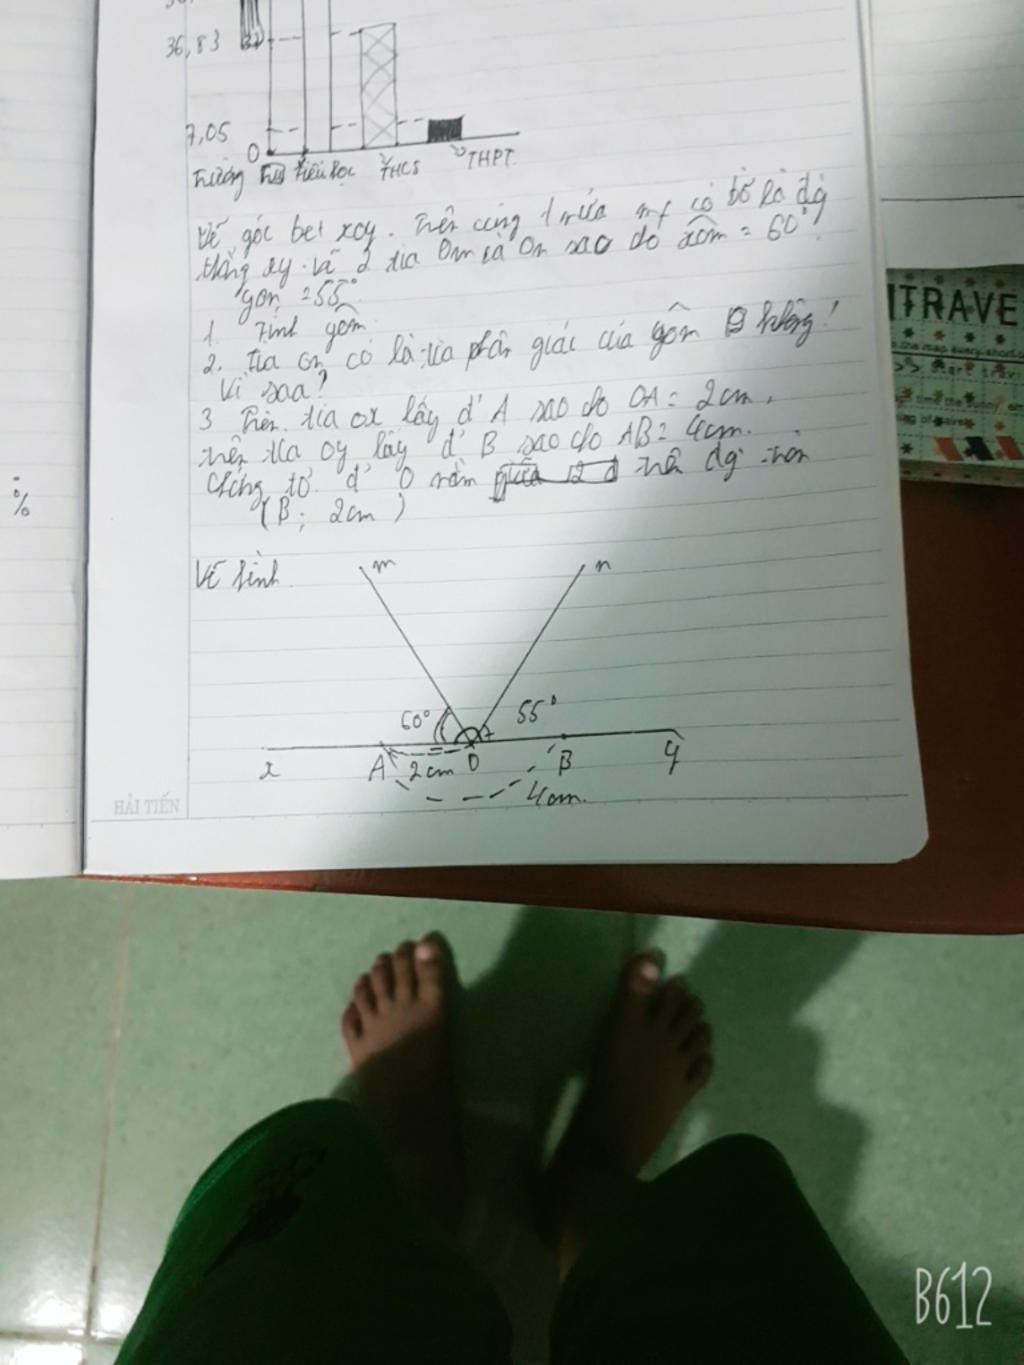 36,83
7,05
0
Trường Tiểu học THCS THPT
Vẽ góc bẹt xoy. Trên cùng 1 nửa mf có bờ là đg
thẳng xy vẽ 2 tia Om và On sao do xôm = 60°
yon = 55°
1. Tính yôm.
2. Tia on có là tia phân giác của yôm không!
Vì sao?
3 Trên tia ox lấy đ' A sao do OA = 2cm,
trên tia oy lấy đ' B sao do AB = 4cm.
Chứng tỏ đ' O nằm trên đg tròn
(B; 2cm)
Vẽ hình.
m n
60° 55°
x A 2cm O B y
4cm.
HẢI TIẾN
%
TRAVE
>> start trav
B612